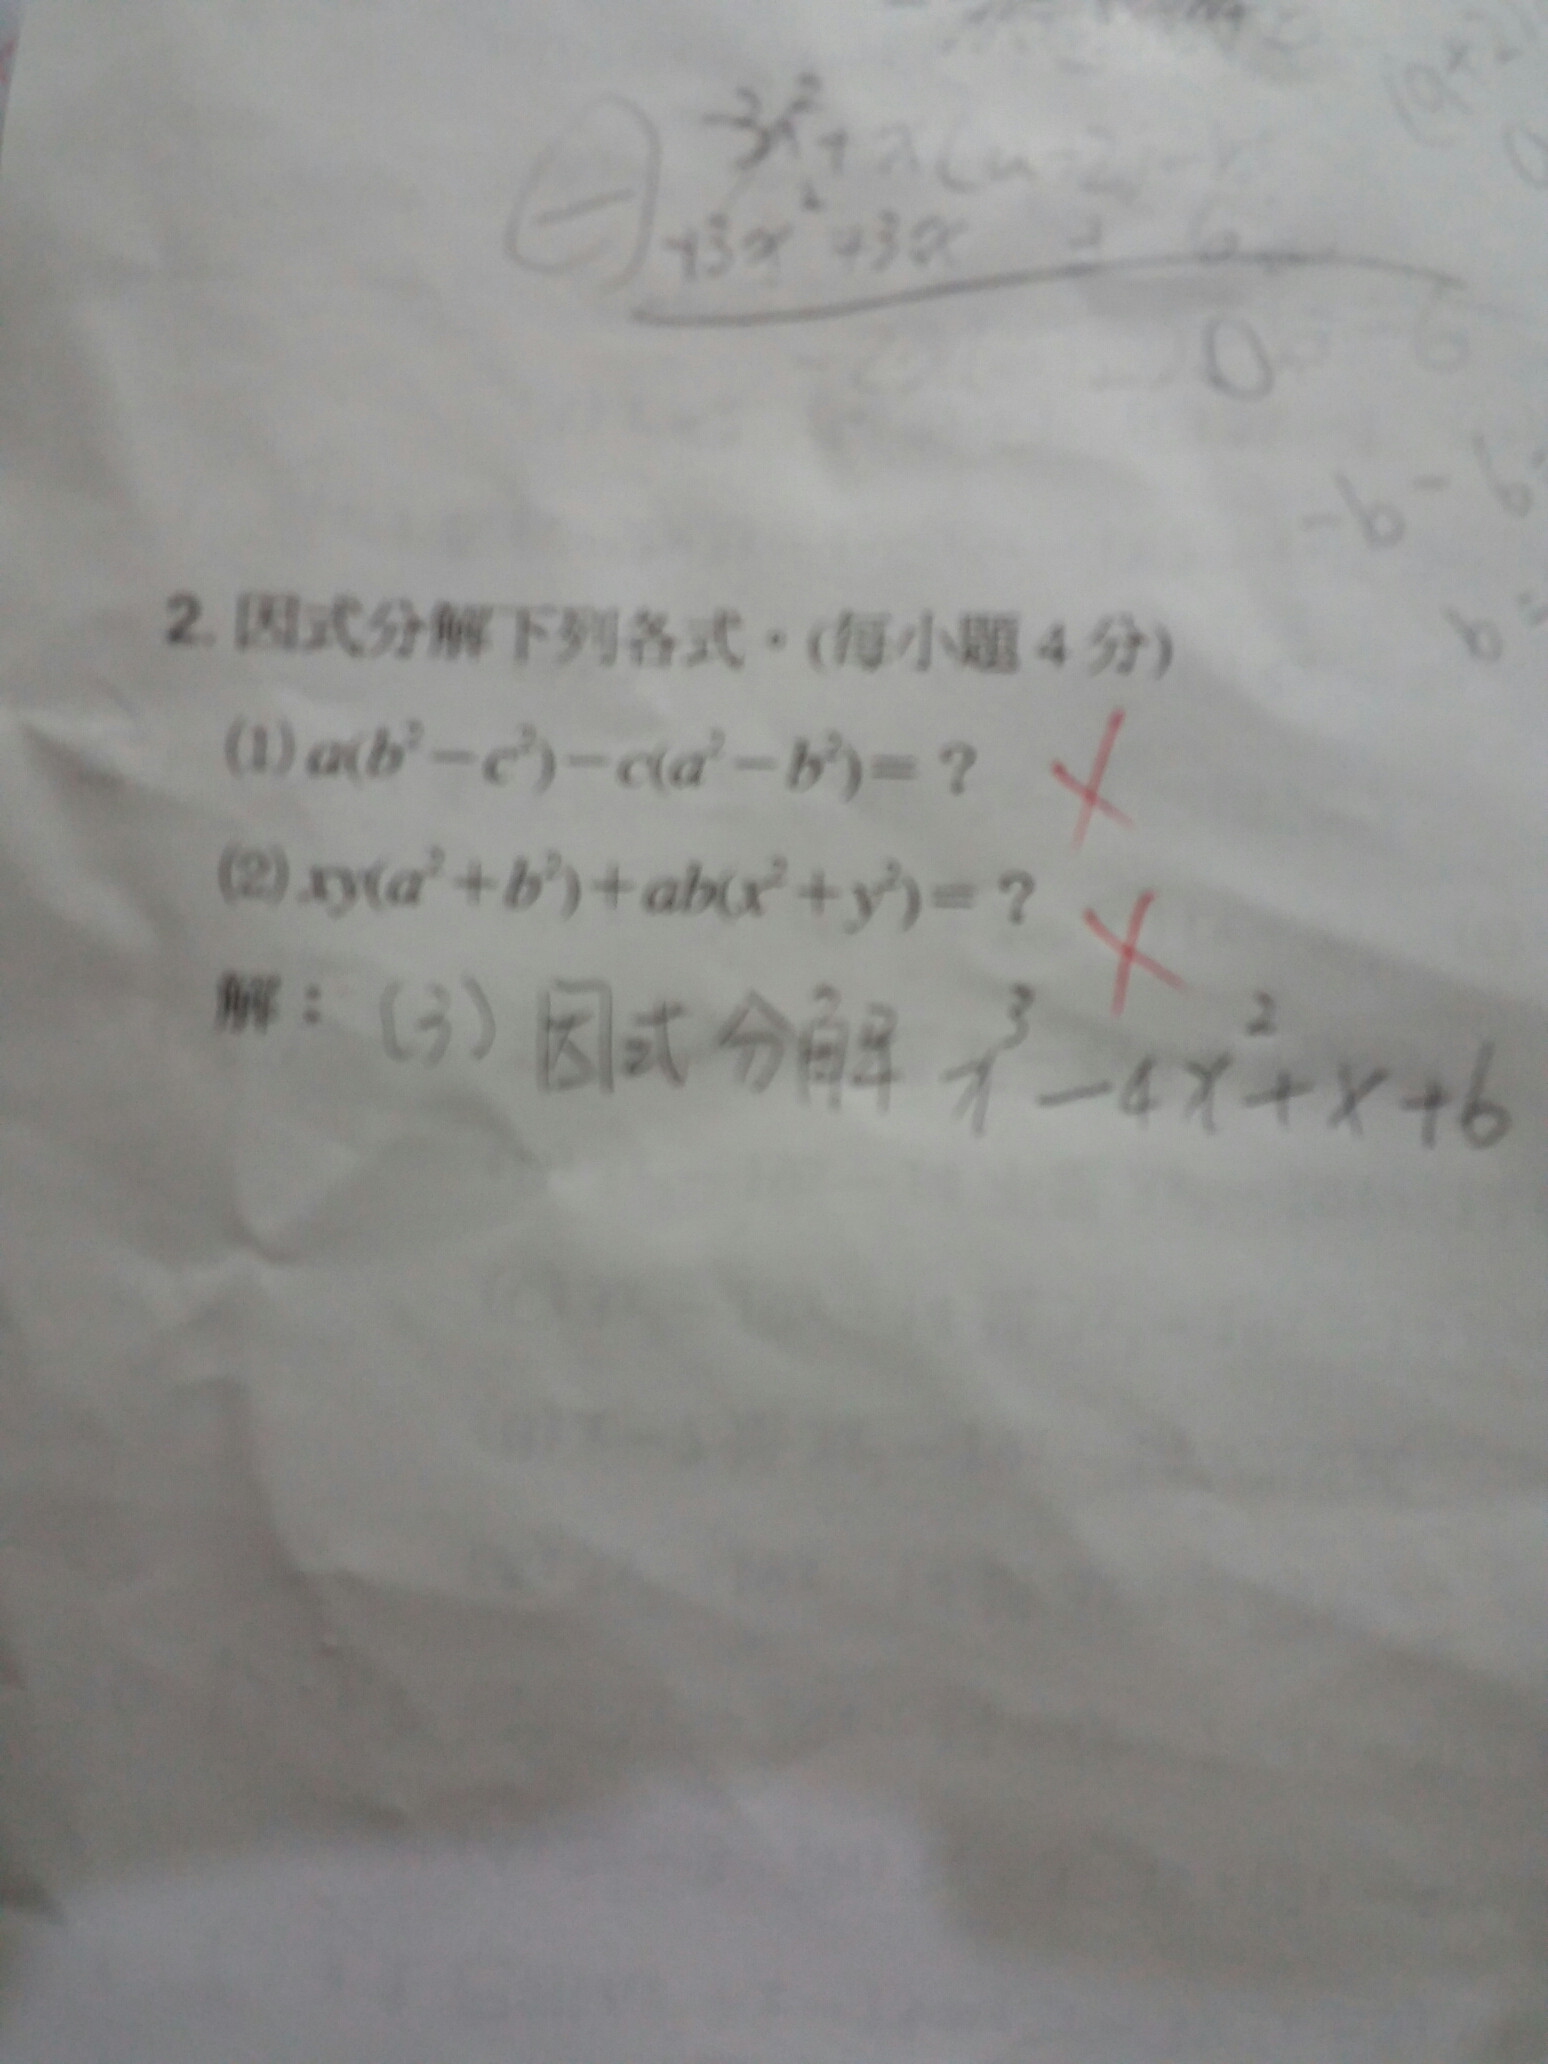 -3x²+x(
+3x²+3x
0
-b-b
b=
2. 因式分解下列各式。(每小題 4 分)
(1) a(b²-c²)-c(a²-b²)=?
(2) xy(a²+b²)+ab(x²+y²)=?
解：(3) 因式分解 x³-4x²+x+6